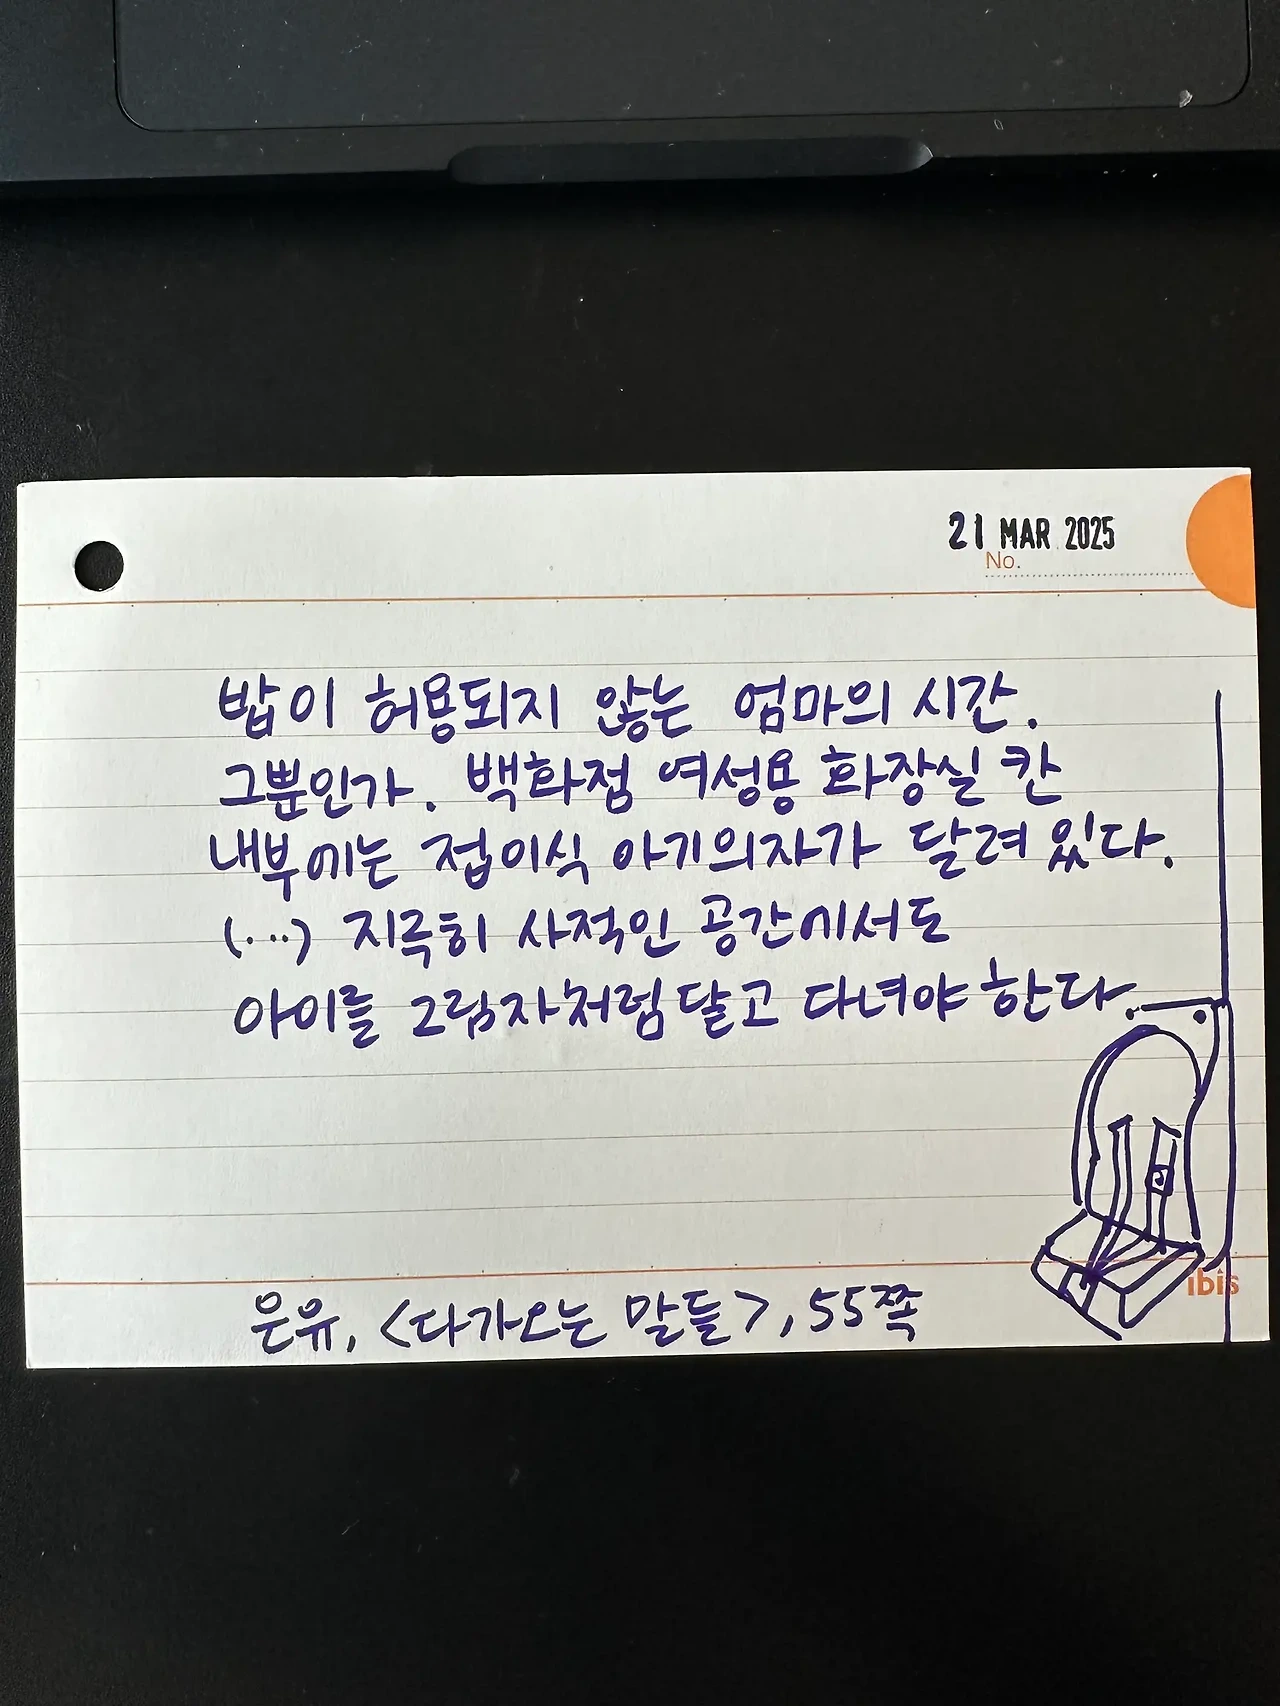 21 MAR 2025
No.
밥이 허용되지 않는 엄마의 시간.
그뿐인가. 백화점 여성용 화장실 칸
내부에는 접이식 아기의자가 달려 있다.
(...) 지극히 사적인 공간에서도
아이를 그림자처럼 달고 다녀야 한다.
ibis
은유, <다가오는 말들>, 55쪽